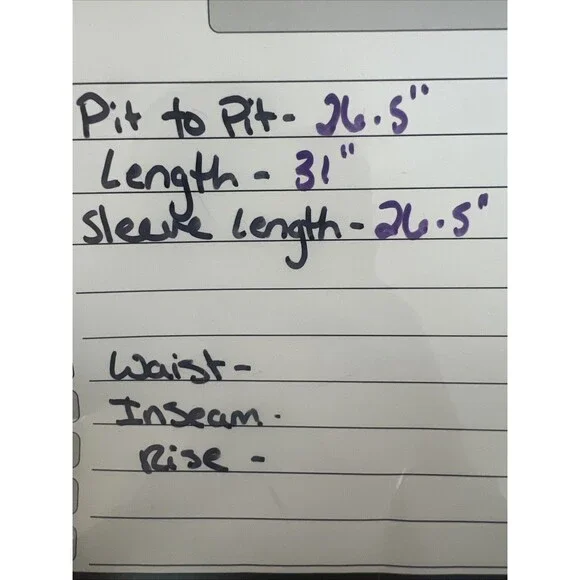 Pit to Pit- 26.5"
Length - 31"
Sleeve Length - 26.5"
Waist -
Inseam.
Rise -